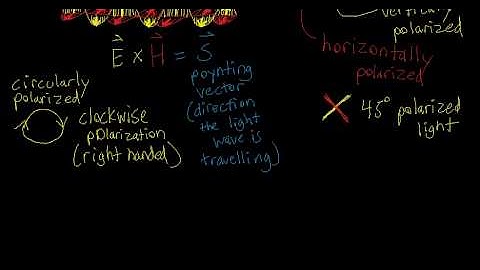 vertically
polarized
E × H = S
horizontally
polarized
poynting
vector
(direction
the light
wave is
travelling)
circularly
polarized
clockwise
polarization
(right handed)
45° polarized
light